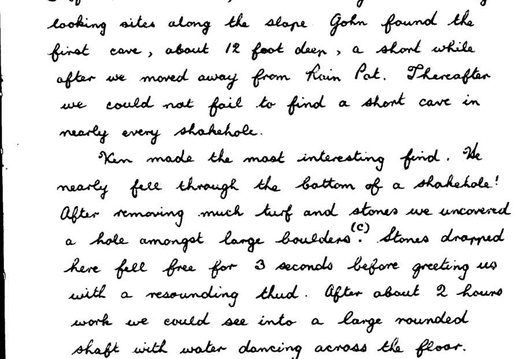 looking sites along the slope. John found the
first cave, about 12 foot deep, a short while
after we moved away from Rain Pot. Thereafter
we could not fail to find a short cave in
nearly every shakehole.
Ken made the most interesting find. He
nearly fell through the bottom of a shakehole!
After removing much turf and stones we uncovered
a hole amongst large boulders (C). Stones dropped
here fell free for 3 seconds before greeting us
with a resounding thud. After about 2 hours
work we could see into a large rounded
shaft with water dancing across the floor.